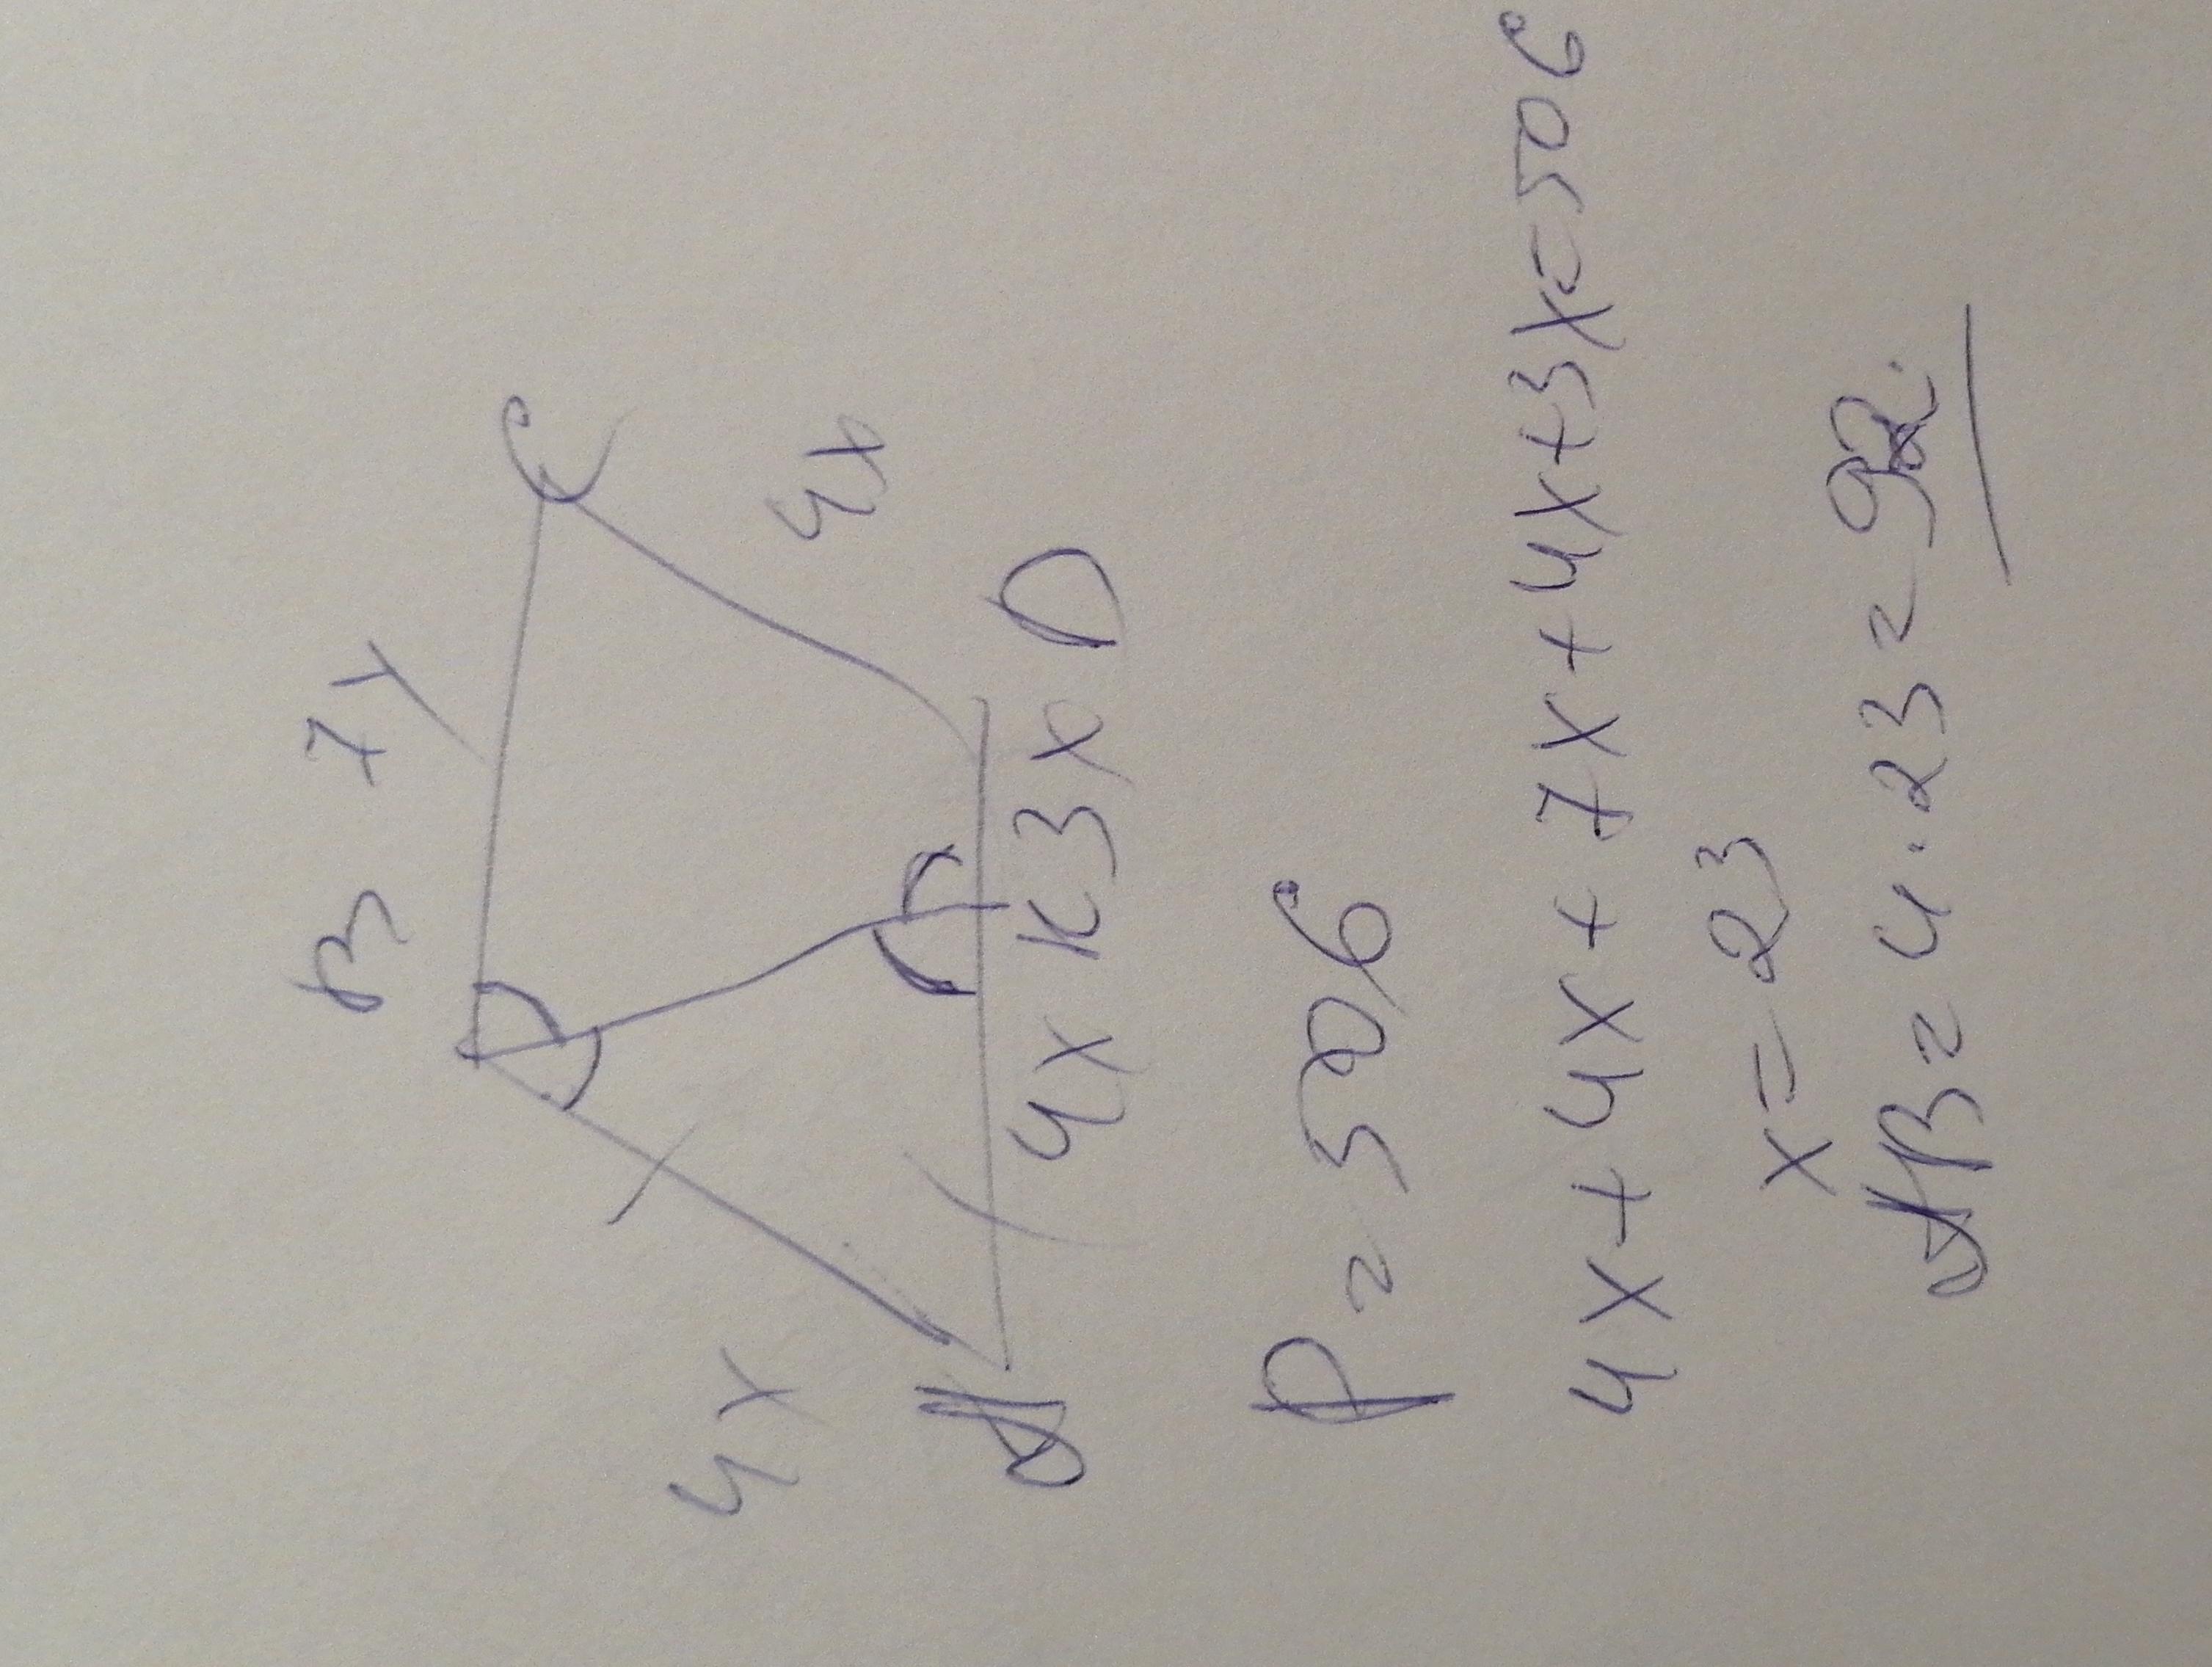 B 7x C
4x 4x
A 4x K 3x D
P = 506
4x + 4x + 7x + 4x + 3x = 506
x = 23
AB = 4 · 23 = 92.